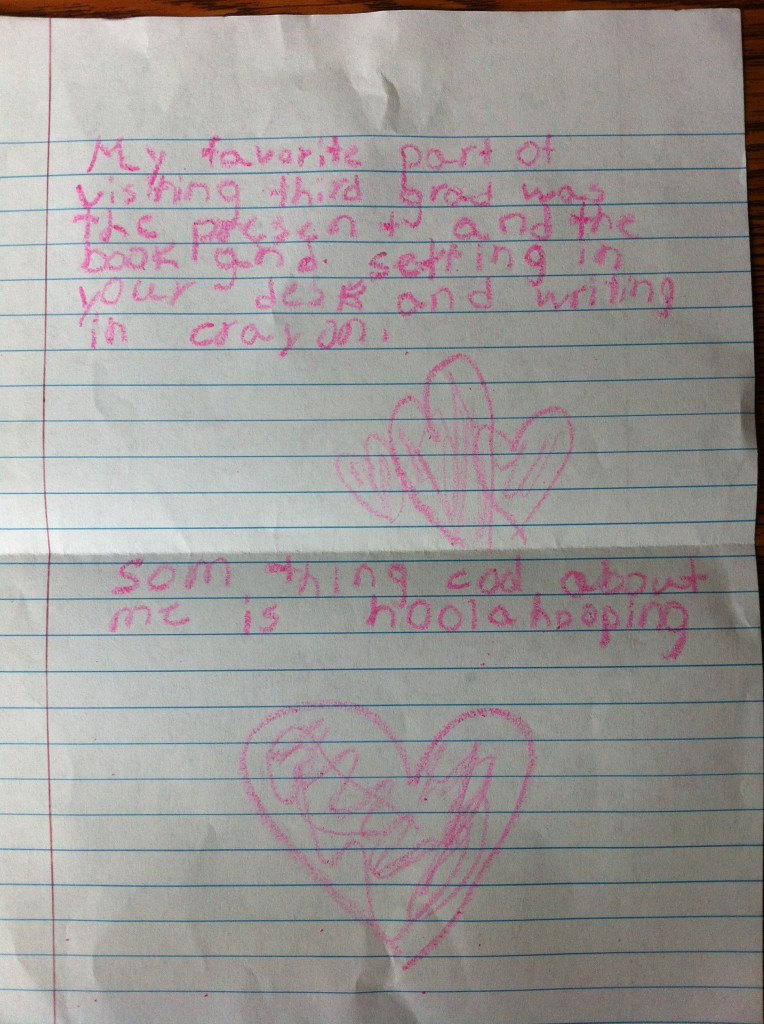 My favorite part of
visiting third grad was
the present and the
book and setting in
your desk and writing
in crayon.
som thing cool about
me is hoolahooping